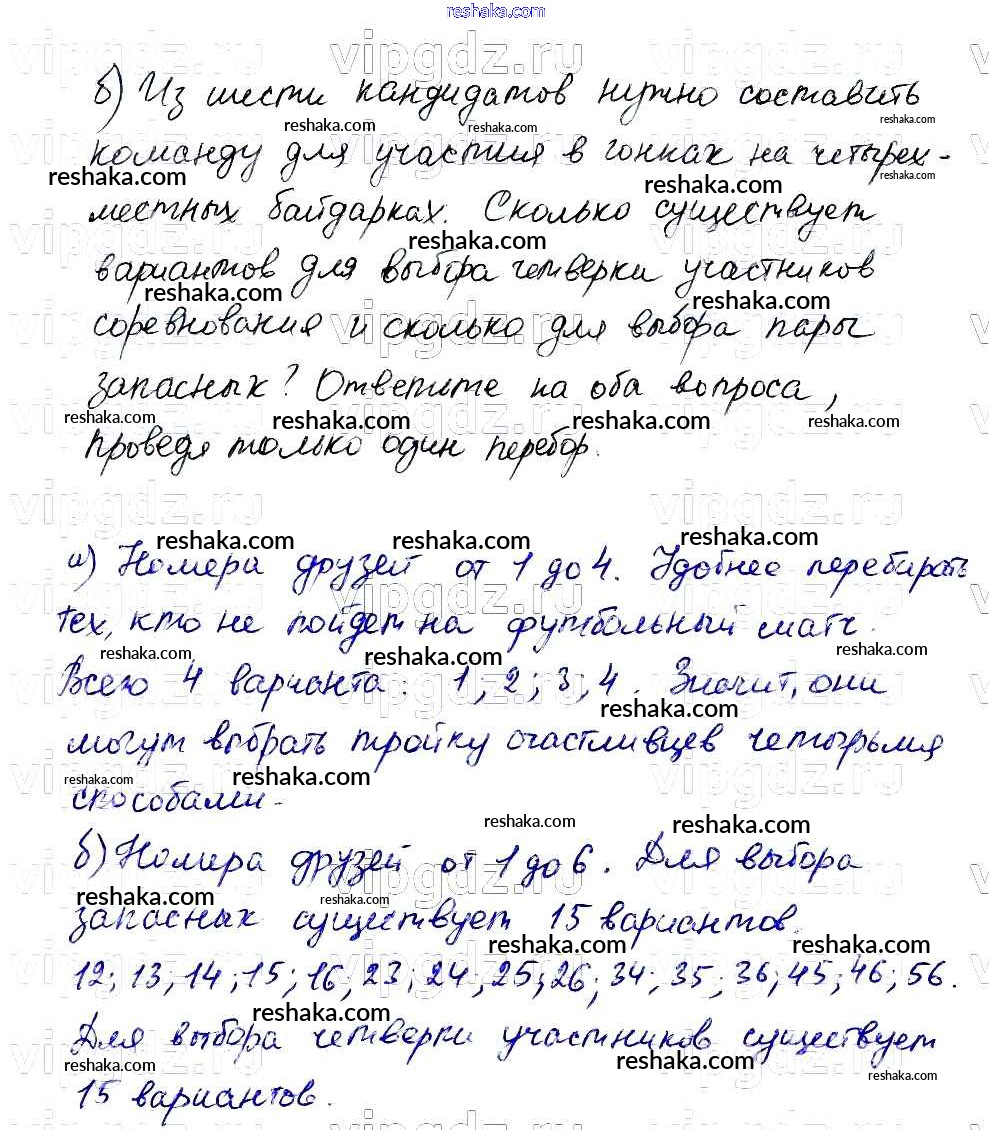 reshaka.com
б) Из шести кандидатов нужно составить
команду для участия в гонках на четырех-
местных байдарках. Сколько существует
вариантов для выбора четверки участников
соревнования и сколько для выбора пары
запасных? Ответьте на оба вопроса,
проведя только один перебор.
а) Номера друзей от 1 до 4. Удобнее перебирать
тех, кто не пойдет на футбольный матч.
Всего 4 варианта: 1; 2; 3; 4. Значит, они
могут выбрать тройку счастливцев четырьмя
способами.
б) Номера друзей от 1 до 6. Для выбора
запасных существует 15 вариантов.
12; 13; 14; 15; 16; 23; 24; 25; 26; 34; 35; 36; 45; 46; 56.
Для выбора четверки участников существует
15 вариантов.